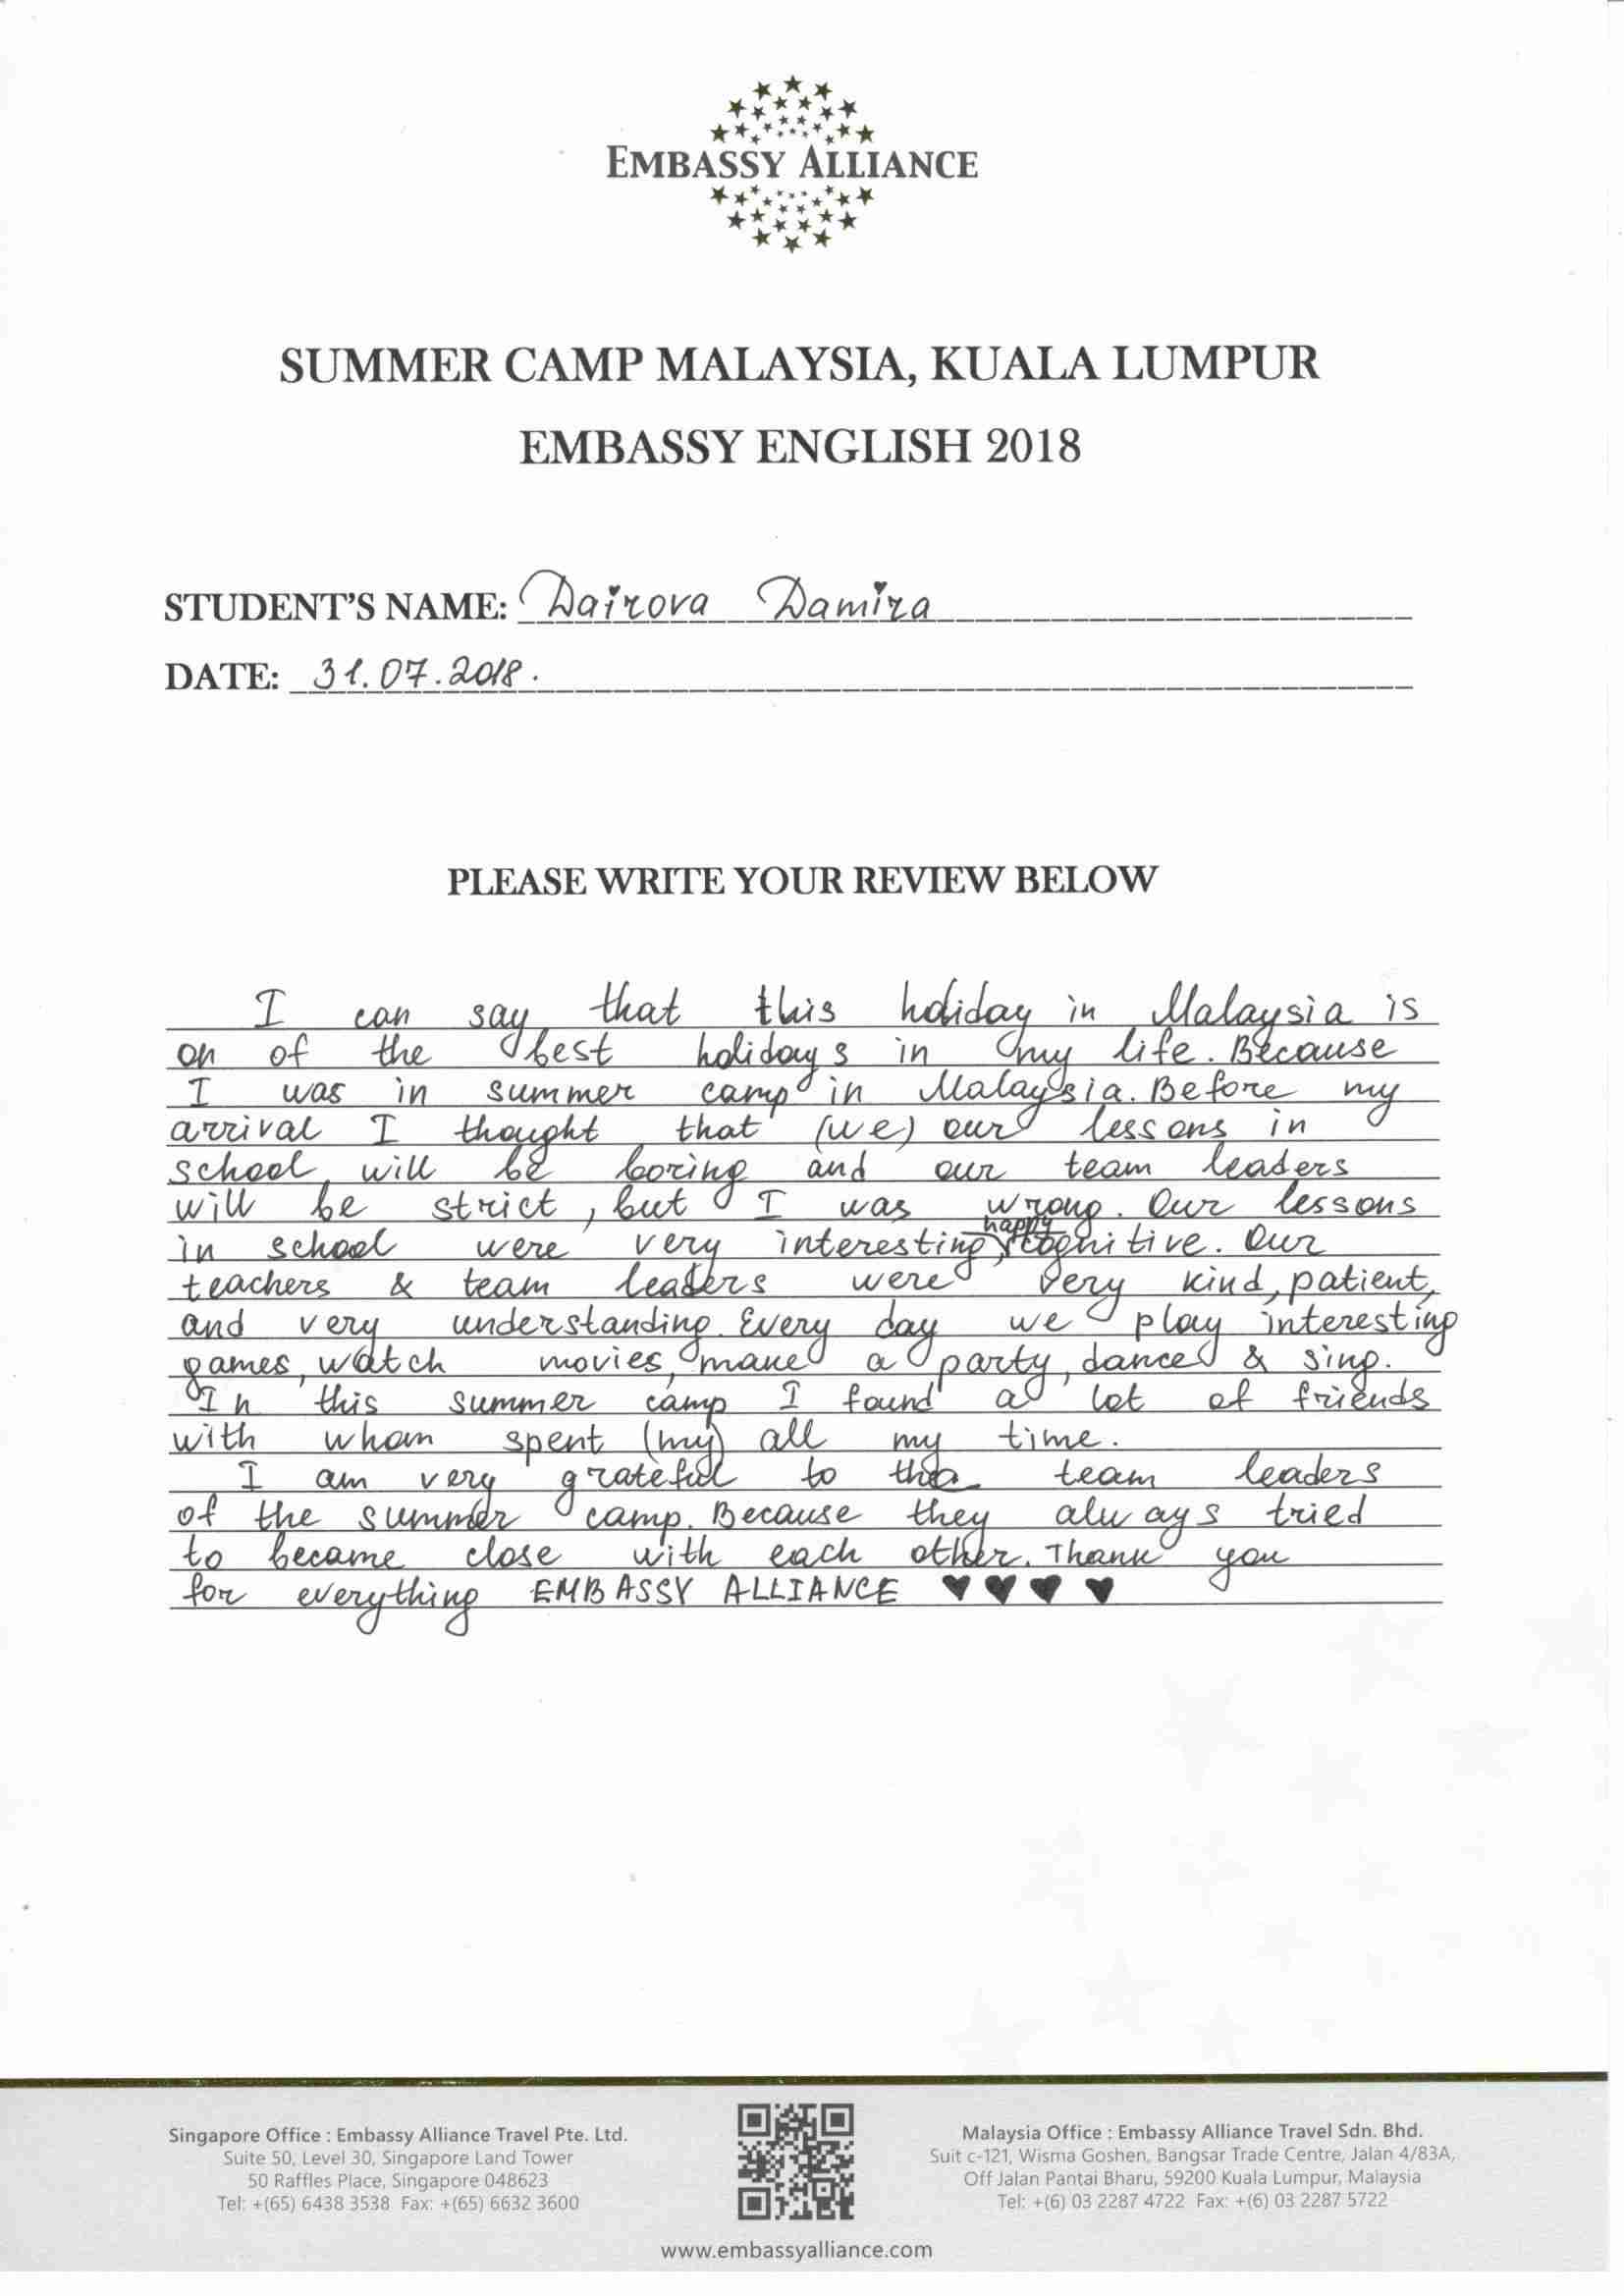 EMBASSY ALLIANCE
SUMMER CAMP MALAYSIA, KUALA LUMPUR
EMBASSY ENGLISH 2018
STUDENT'S NAME: Dairova Damira
DATE: 31.07.2018.
PLEASE WRITE YOUR REVIEW BELOW
I can say that this holiday in Malaysia is
on of the best holidays in my life. Because
I was in summer camp in Malaysia. Before my
arrival I thought that (we) our lessons in
school will be boring and our team leaders
will be strict, but I was wrong. Our lessons
happy
in school were very interesting, cognitive. Our
teachers & team leaders were very kind, patient,
and very understanding. Every day we play interesting
games, watch movies, make a party, dance & sing.
In this summer camp I found a lot of friends
with whom spent (my) all my time.
I am very grateful to the team leaders
of the summer camp. Because they always tried
to became close with each other. Thank you
for everything EMBASSY ALLIANCE ♥ ♥ ♥ ♥
Singapore Office : Embassy Alliance Travel Pte. Ltd.
Suite 50, Level 30, Singapore Land Tower
50 Raffles Place, Singapore 048623
Tel: +(65) 6438 3538 Fax: +(65) 6632 3600
Malaysia Office : Embassy Alliance Travel Sdn. Bhd.
Suit c-121, Wisma Goshen, Bangsar Trade Centre, Jalan 4/83A,
Off Jalan Pantai Bharu, 59200 Kuala Lumpur, Malaysia
Tel: +(6) 03 2287 4722 Fax: +(6) 03 2287 5722
www.embassyalliance.com